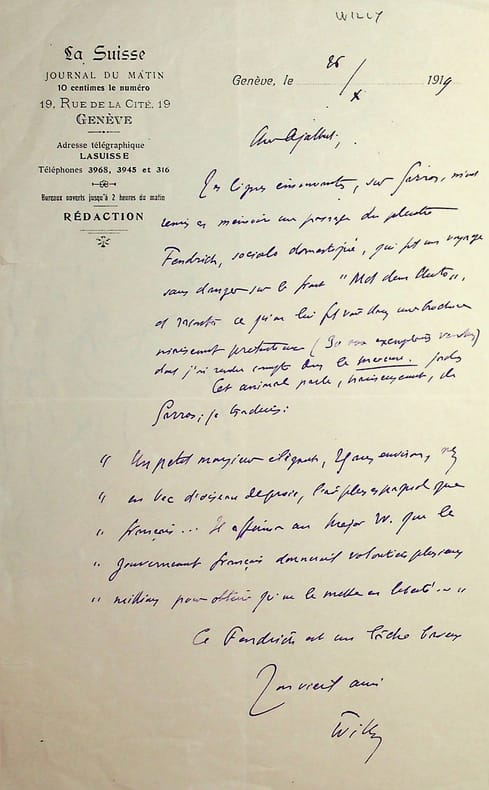 WILLY
La Suisse
JOURNAL DU MATIN
10 centimes le numéro
19, RUE DE LA CITÉ, 19
GENÈVE
Adresse télégraphique
LASUISSE
Téléphones 3968, 3945 et 316
Bureaux ouverts jusqu'à 2 heures du matin
RÉDACTION
Genève, le 26/X 1919
Cher Ajalbert,
Les lignes émouvantes, sur Garros, m'ont
remis en mémoire un passage du pleutre
Fendrich, socialo domestiqué, qui fit un voyage
sans danger sur le front "Mit dem Auto",
et raconta ce qu'on lui fit voir dans une brochure
niaisement prétentieuse (30 000 exemplaires vendus)
dont j'ai rendu compte dans le Mercure. jadis
Cet animal parle, niaisement, de
Garros; je traduis:
" Un petit monsieur élégant, 29 ans environ, nez
" en bec d'oiseau de proie, l'air plus espagnol que
" français... Il affirma au Major W. que le
" gouvernement français donnerait volontiers plusieurs
" millions pour obtenir qu'on le mette en liberté... "
Ce Fendrich est un lâche baveux
Ton vieil ami
Willy